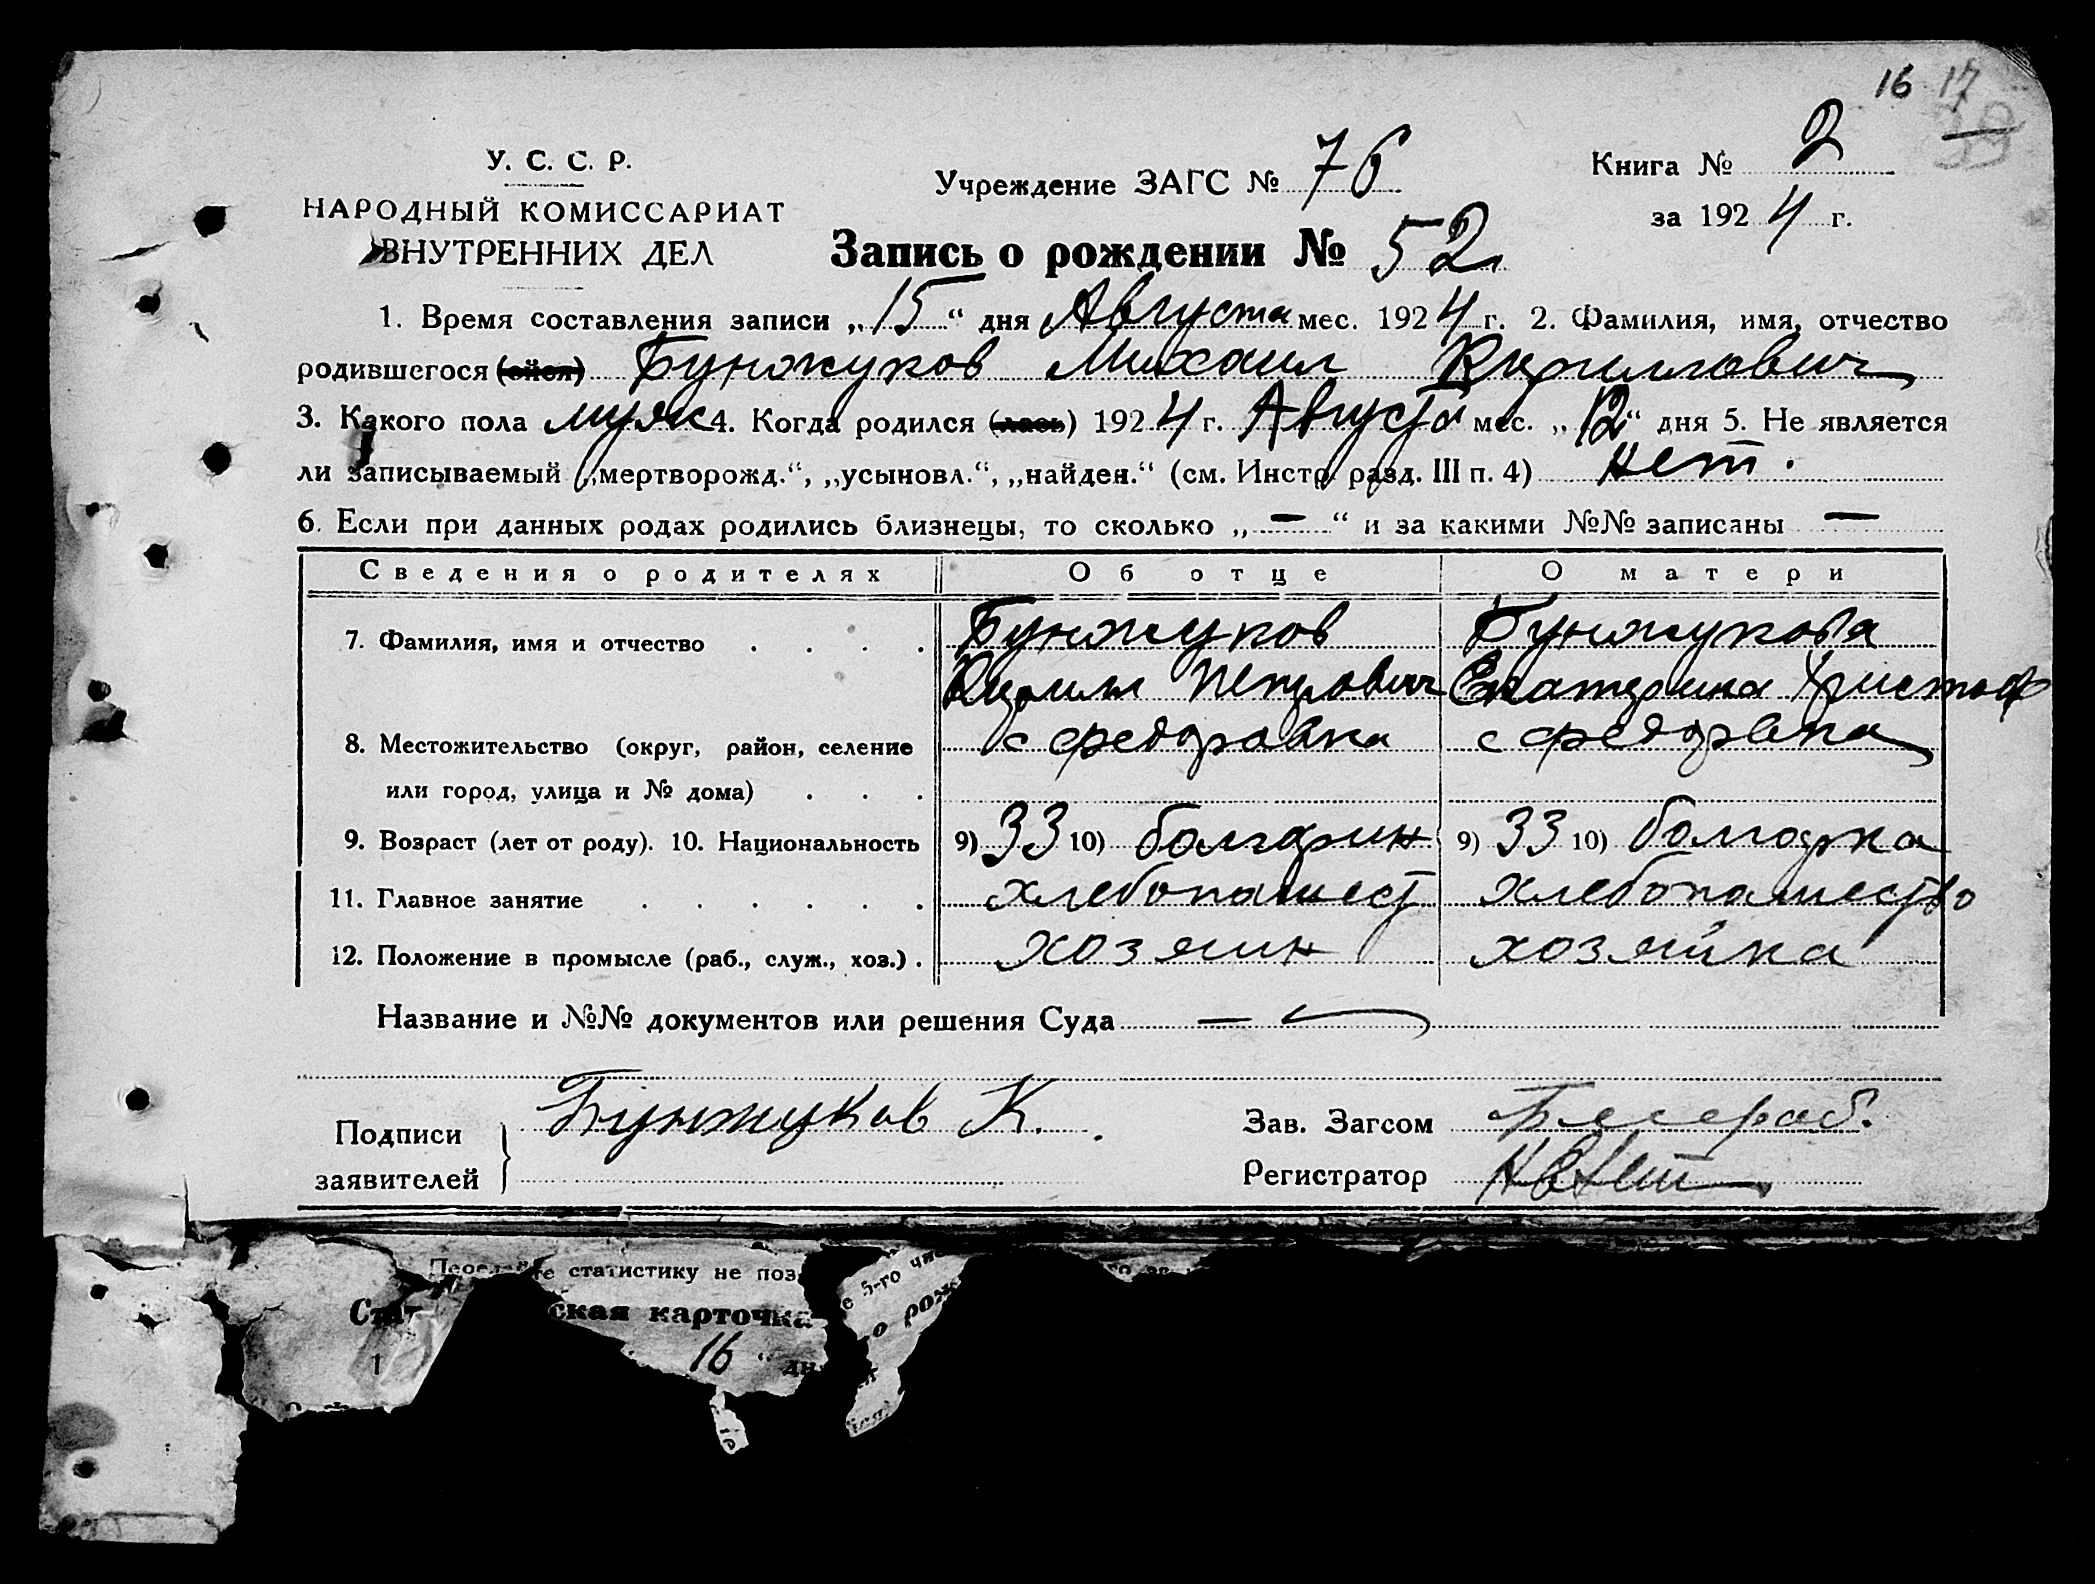 16 17
39
У. С. С. Р.
НАРОДНЫЙ КОМИССАРИАТ
ВНУТРЕННИХ ДЕЛ
Учреждение ЗАГС № 76
Книга № 2
за 1924 г.
Запись о рождении № 52
1. Время составления записи „15“ дня Августа мес. 1924 г. 2. Фамилия, имя, отчество
родившегося (айся) Бунжуков Михаил Кириллович
3. Какого пола муж 4. Когда родился (лась) 1924 г. Августа мес. „12“ дня 5. Не является
ли записываемый „мертворожд.“, „усыновл.“, „найден.“ (см. Инстр. разд. III п. 4) нет.
6. Если при данных родах родились близнецы, то сколько „—“ и за какими №№ записаны —
Сведения о родителях Об отце О матери
7. Фамилия, имя и отчество . . . . Бунжуков Бунжукова
Кирилл Петрович Екатерина Христоф
8. Местожительство (округ, район, селение с федоровка с федоровка
или город, улица и № дома) . . .
9. Возраст (лет от роду). 10. Национальность 9) 33 10) болгарин 9) 33 10) болгарка
11. Главное занятие . . . . . . хлебопашест хлебопашество
12. Положение в промысле (раб., служ., хоз.) . хозяин хозяйка
Название и №№ документов или решения Суда —
Подписи заявителей Бунжуков К.
Зав. Загсом
Регистратор
статистику не поз
е 5-го чи
Стат ская карточка
о рож
1 16 “ дн